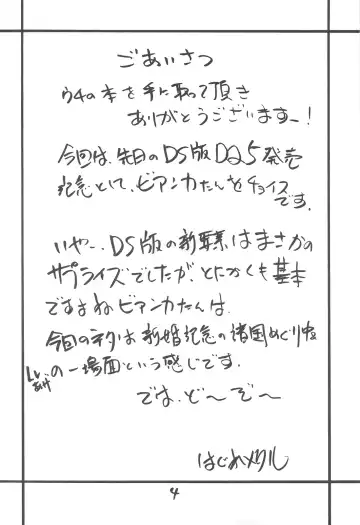 ごあいさつ
ウチの本を手に取って頂き
ありがとうございますー!
今回は、先日のDS版DQ5発売
記念として、ビアンカたんをチョイス
です。
いやー、DS版の新要素はまさかの
サプライズでしたが、とにかくも基本
ですよねビアンカたんは。
今回のネタは新婚記念の諸国めぐり中
Lv.あげ
の一場面という感じです。
では、ど〜ぞ〜
はじめメタル
4